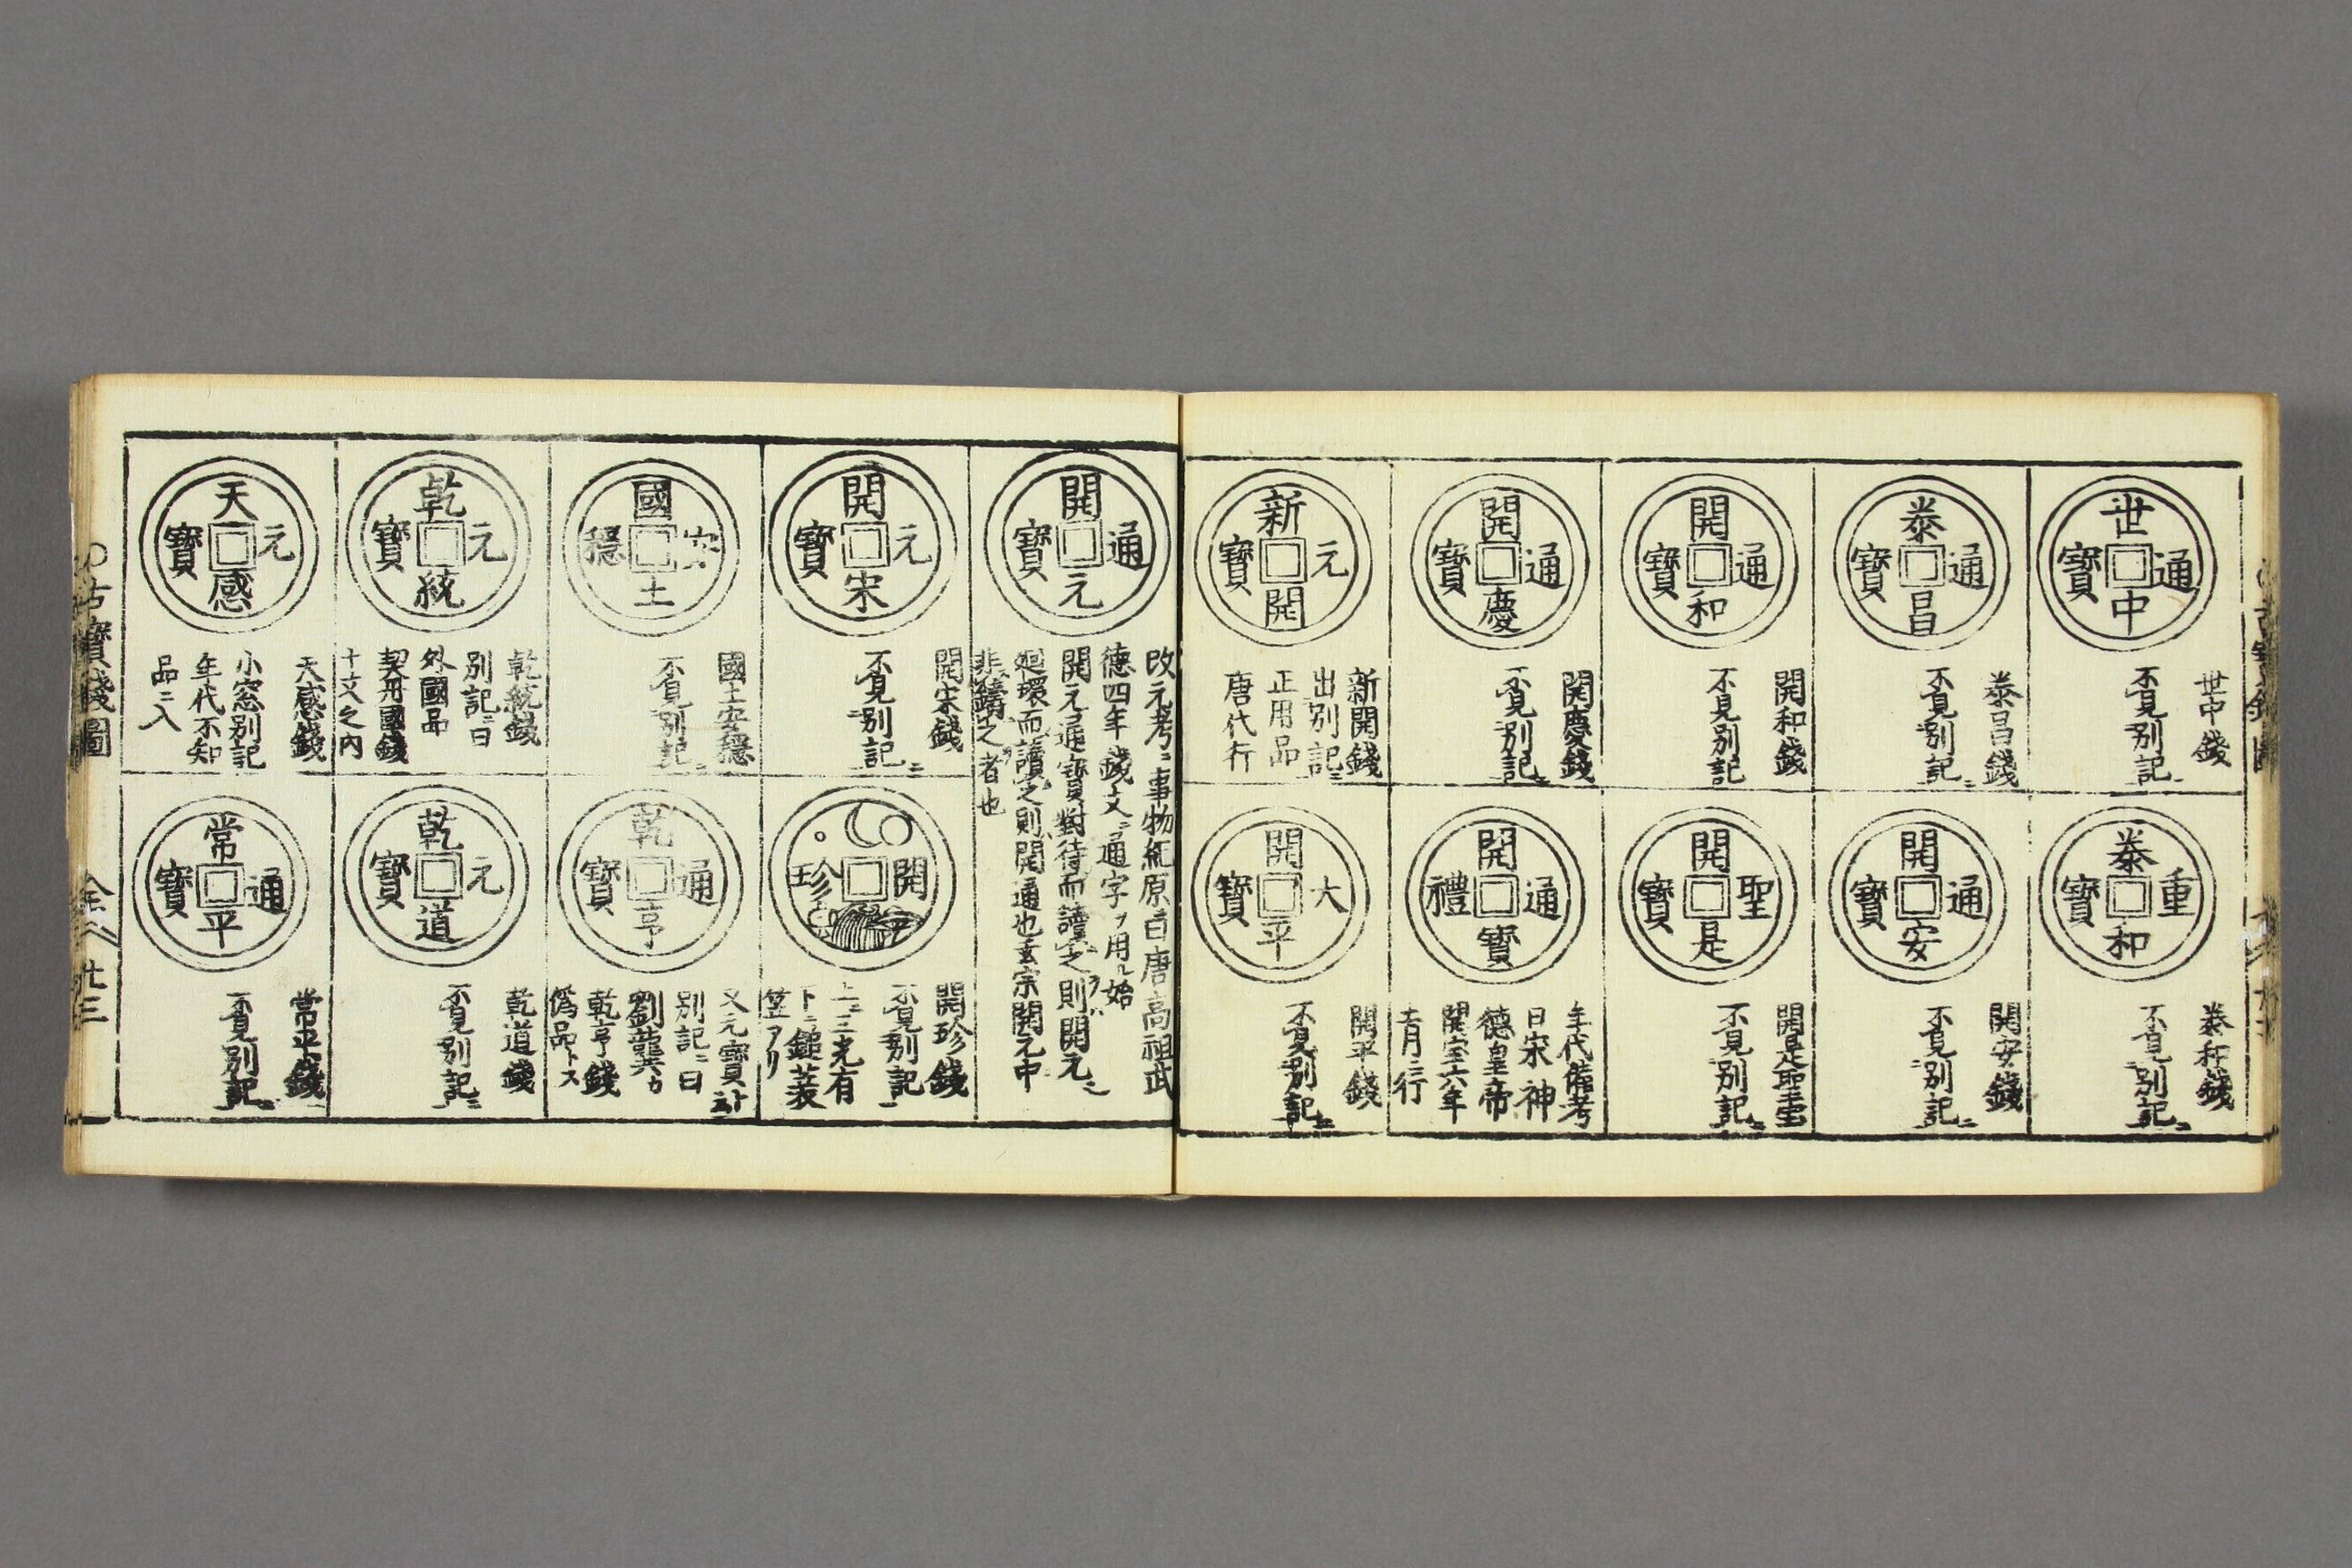 世中通寶
世中錢
不見別記ニ
泰和重寶
泰和錢
不見別記ニ
泰昌通寶
泰昌錢
不見別記ニ
開安通寶
開安錢
不見別記ニ
開和通寶
開和錢
不見別記
開是聖寶
開是聖宝
不見別記ニ
開慶通寶
開慶錢
不見別記ニ
開寶通禮
年代備考
曰宋神
德皇帝
開宝六年
行
新開元寶
新開錢
出別記ニ
正用品
唐代行
開平大寶
開平錢
不見別記ニ
開元通寶
改元考ニ事物紀原曰唐高祖武
德四年錢文ニ通字ヲ用ル始
開元通寶對待而讀之則開元
廻環而讀之則開通也玄宗開元中
非鑄之者也
開宋元寶
開宋錢
不見別記ニ
開珍
開珍錢
不見別記
上ニ三光有
下ニ鎚蓑
笠アリ
國土安穏
國土安穏
不見別記ニ
乾亨通寶
又元寶
別記ニ曰
劉龑カ
乾亨錢
偽品トス
乾統元寶
乾統錢
別記ニ曰
外國品
契丹國錢
十文之内
乾道元寶
乾道錢
不見別記ニ
天感元寶
天感錢
小窓別記
年代不知
品ニ入
常平通寶
常平錢
不見別記ニ
古寶錢圖
廿三